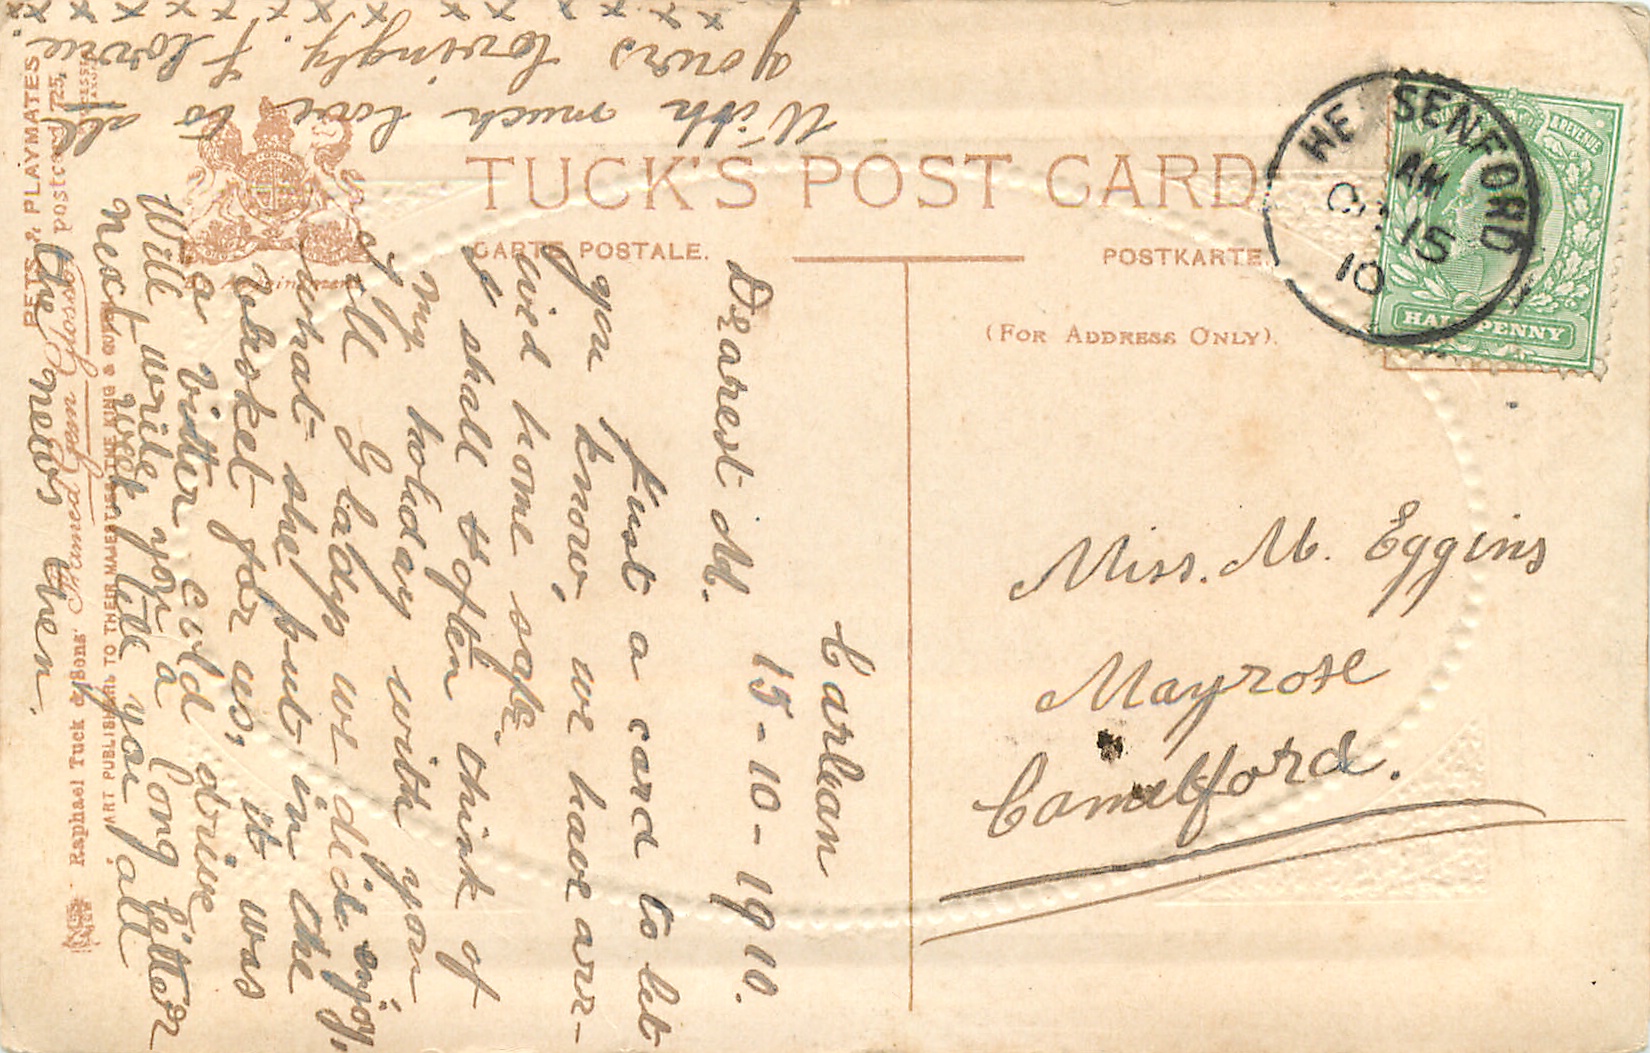 TUCK'S POST CARD
CARTE POSTALE.
POSTKARTE.
(FOR ADDRESS ONLY).
HE SENFORD
AM
OC 15
10
REVENUE
HALFPENNY
Miss. M. Eggins
Mayrose
Camelford.
Carlean
15-10-1910.
Dearest M.
Just a card to let
you know, we have arr-
ived home safe.
I shall often think of
My holiday with you
all Gladys we did enjoy,
what she put in the
basket for us, it was
a bitter cold drive
Will write you a long letter
next week, tell you all
the news then.
With much love to all
yours lovingly. Florrie
x x x x x x x x x x x x
By Appointment
PETS & PLAYMATES
postcard 725
Raphael Tuck & Sons' Framed Gem Glosso
ART PUBLISHERS TO THEIR MAJESTIES THE KING & QUEEN